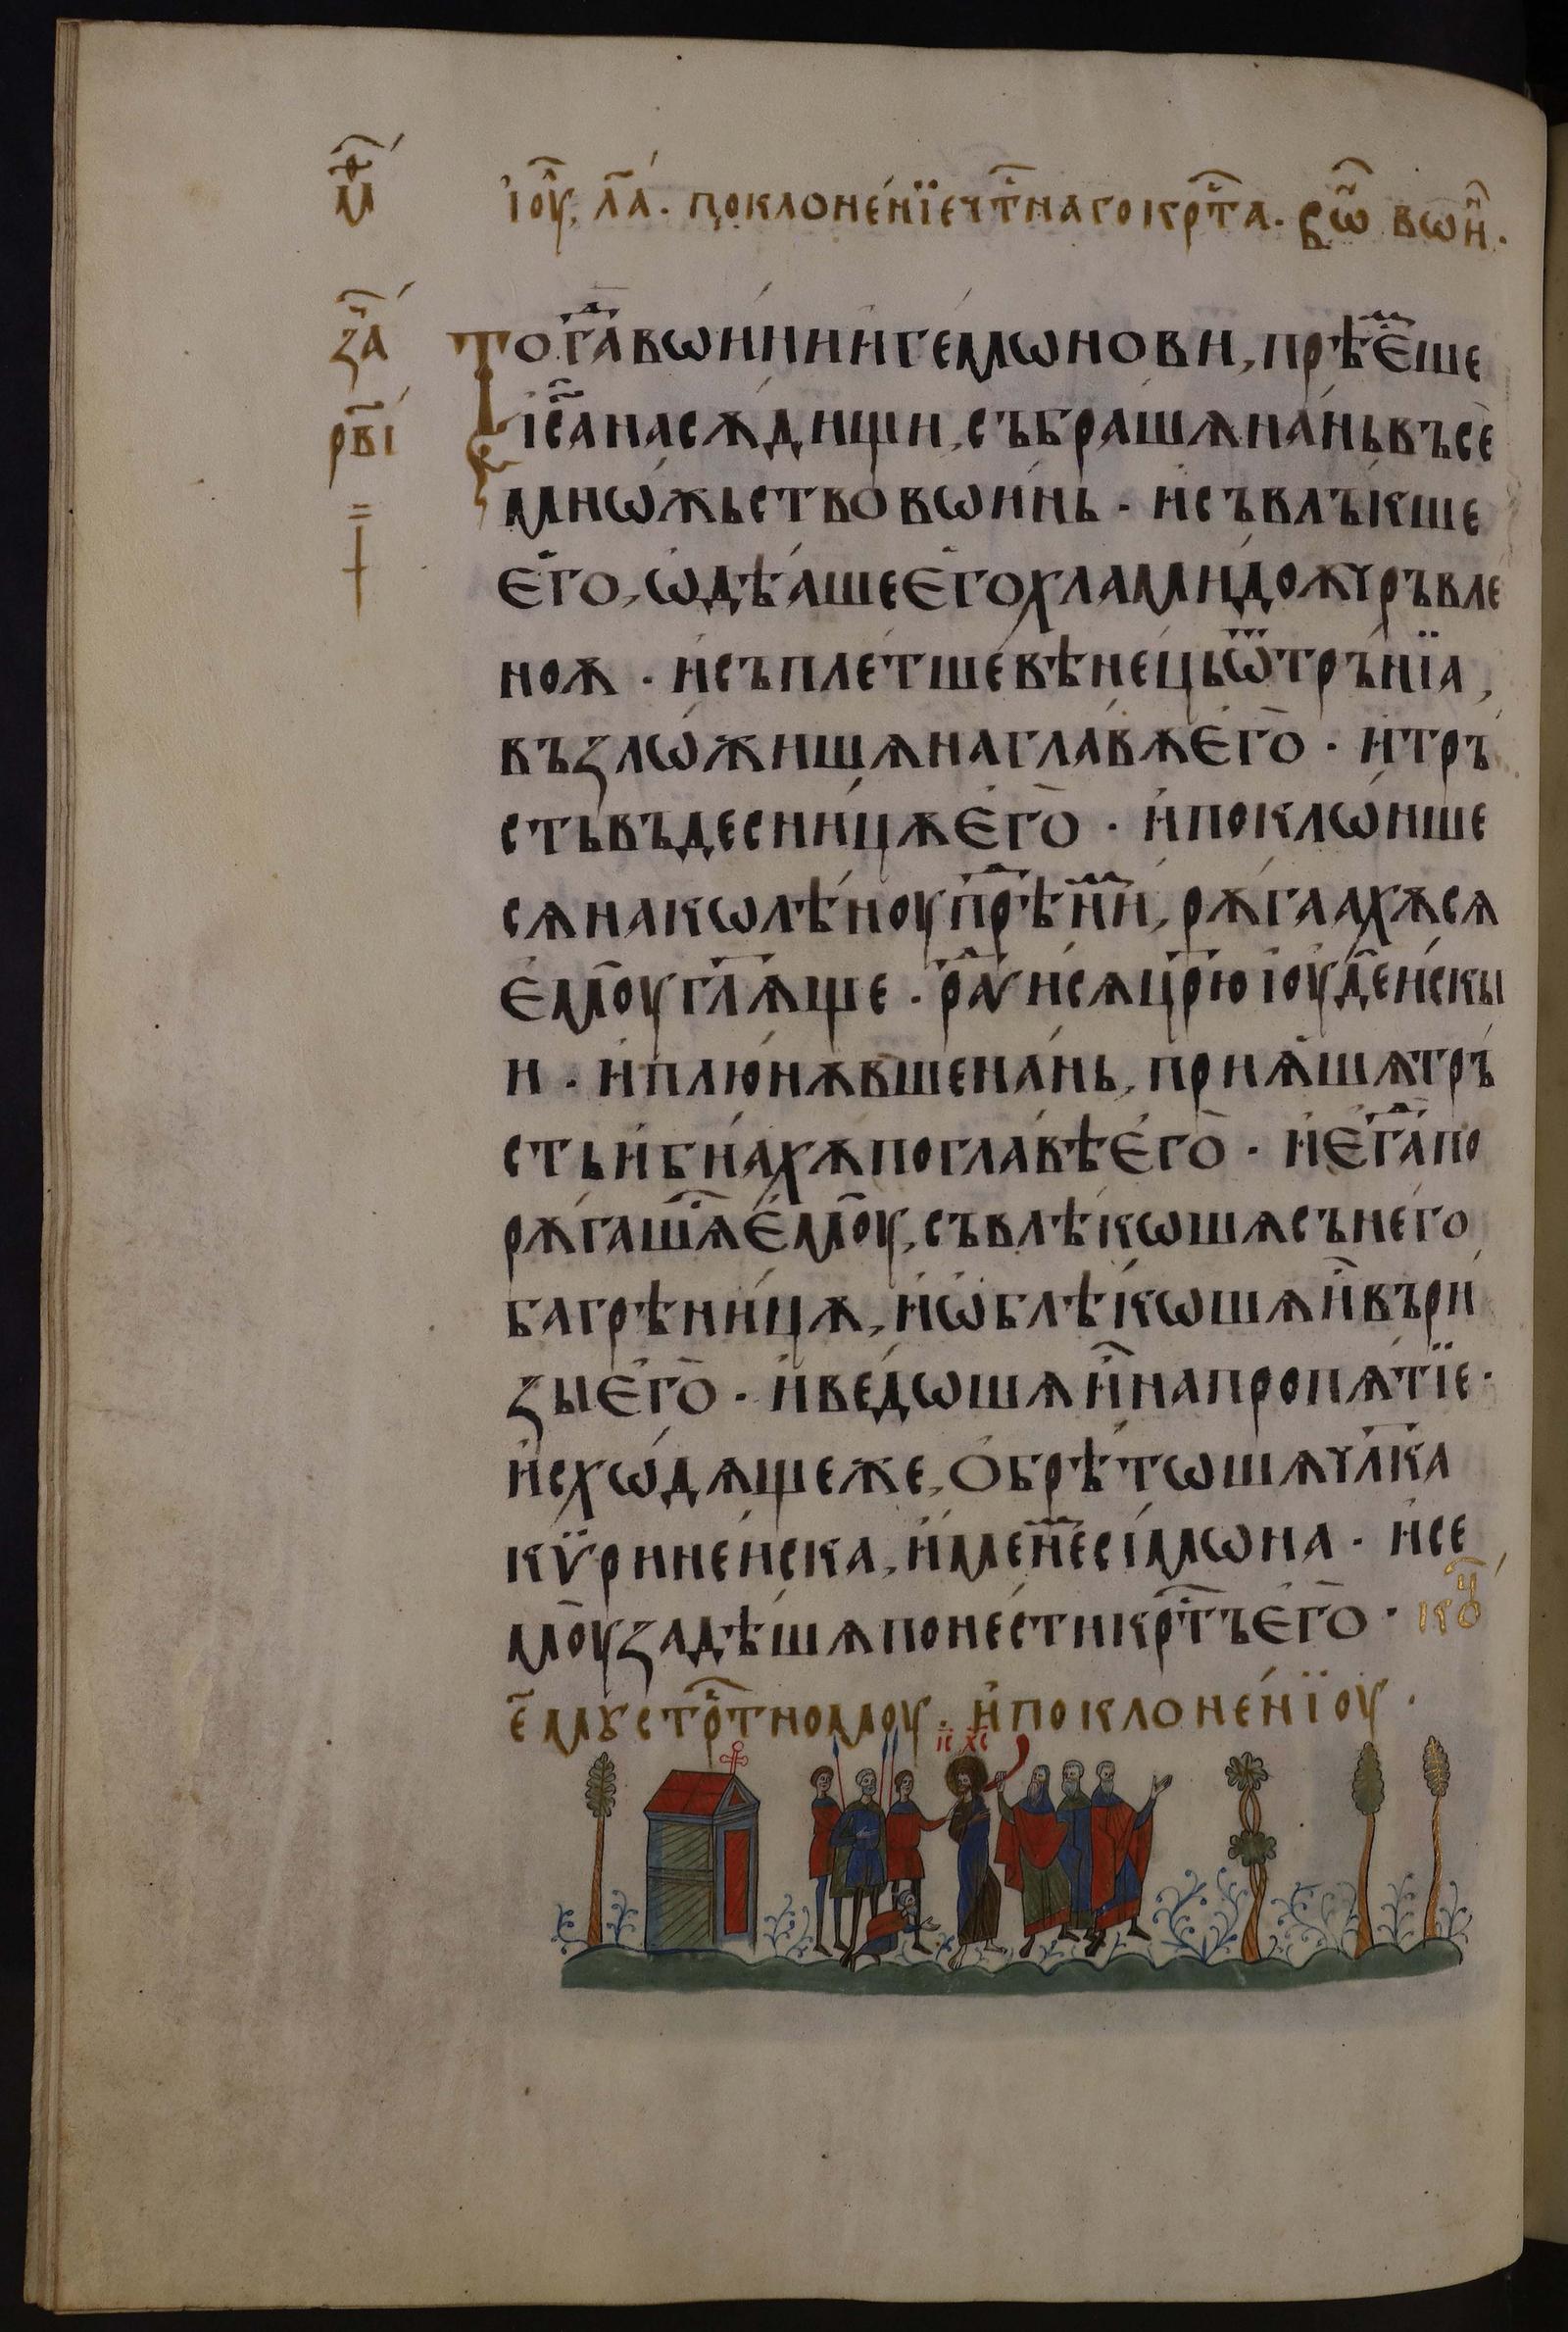 м҃ф
іо҃у. л҃а. поклоне́нїе ч҃тнаго кр҃та. во҃ѡ во҃ѡн.
за҃
То г҃да вѡи́ни и́геѡмѡнови, прѣе҃мше
рв҃і
іс҃а на сѫ́дищи, събра́шѧ на́нь въсѐ
мнѡ́жьство вѡи́нь · и́ съвлъ́кше
е҆го, ѡ҆дѣ́аше е҆го хлами́доѫ чръвле
ноѫ · и҆ съпле́тше вѣне́ць ѿ тръ́нїа,
възлѡ́жишѧ на гла́вѫ е҆го̀ · и҆ тръ́
сть въ десни́цѫ е҆го̀ · и҆ поклѡ́нше
сѧ на кѡлѣ́ноу прѣ́д ни́м, рѫ́гаахѫсѧ
е҆моу̀ гл҃ѧще · ра́дуи́сѧ цр҃ю іоуде́искы
и · и҆ плю́нѫвше на́нь, прїѧ́шѧ тръ́
сть и҆ бїа́хѫ по гла́вѣ е҆го̀ · и҆ е҆г҃да по
рѫ́гашѧс е҆моу̀, съвлѣ́кѡшѧ съ не́го
багрѣни́цѫ, и҆ ѡ҆блѣ́кѡшѧ и҆ въ ри́
зы е҆го̀ · и҆ ве́дѡшѧ и҆ на пропѧ́тїе ·
и҆схѡ́дѧще же, ѻ҆брѣ́тѡшѧ чл҃ка
кѵ̈рине́иска, и҆мене́м сі́мѡна · и҆ се
моу̀ задѣ́шѧ поне́сти кр҃тъ е҆го̀ · кѡ҃н
е҃ѵлїу стр҃тномоу. и҆ поклоне́нїоу.
іс҃ хс҃